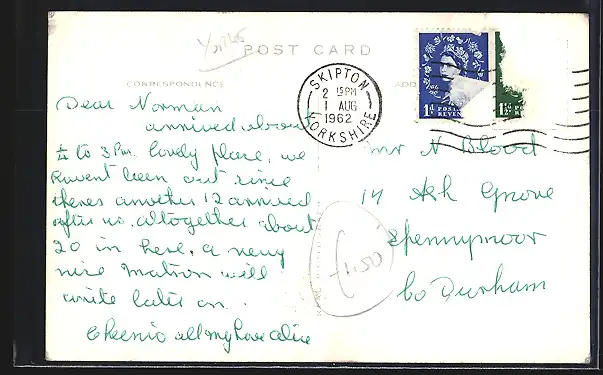 Yorks
POST CARD
CORRESPONDENCE
ADD
SKIPTON
2 15PM
1 AUG
1962
YORKSHIRE
1d POST
REVEN
1½d
Dear Norman
arrived about
¼ to 3 Pm. lovely place, we
havent been out since
theres another 12 arrived
after us. altogether about
20 in here, a very
nice Matron will
write later on.
Cheerio all my love Alice
Mr N Blood
14 Ash Grove
Spennymoor
Co Durham
£1.50